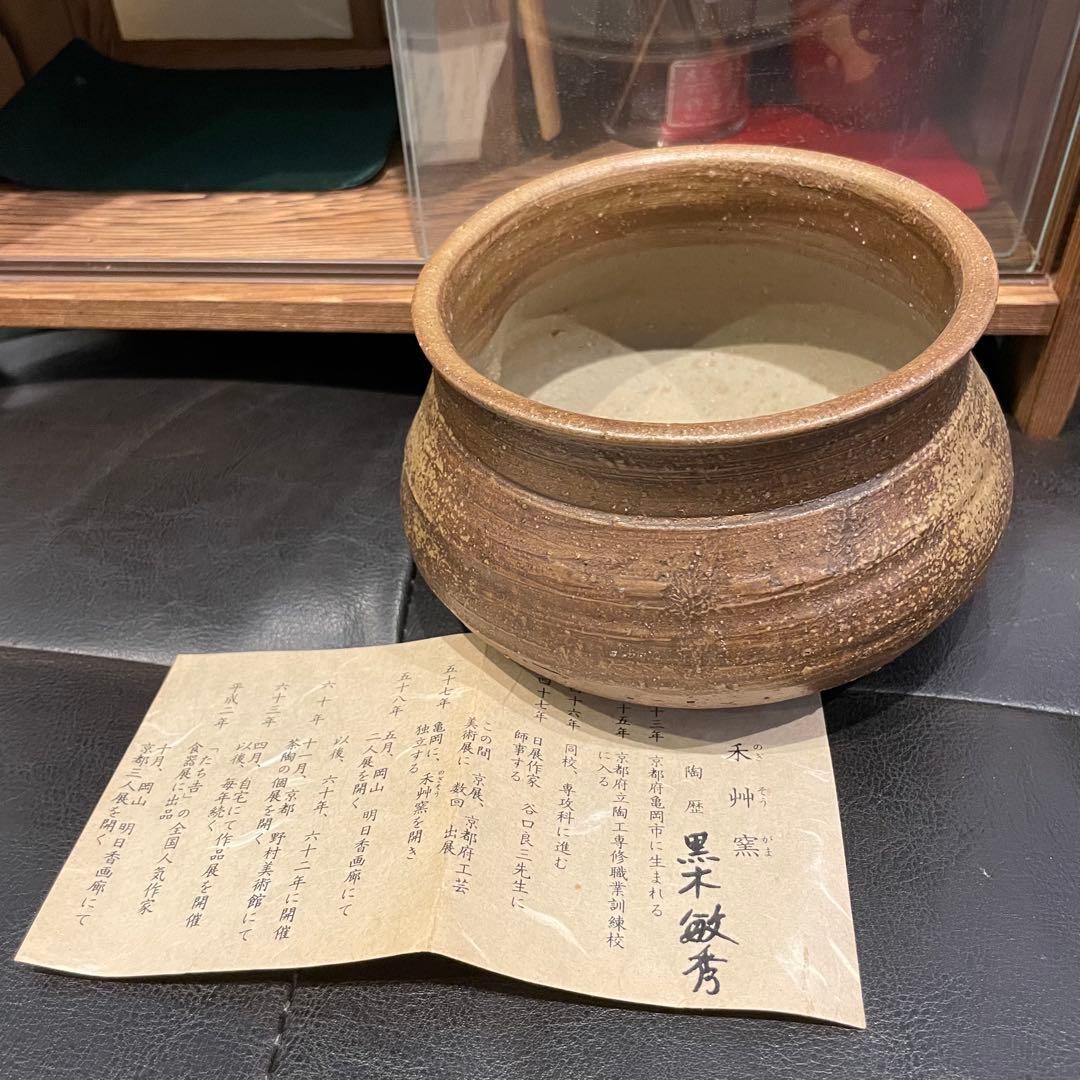 禾艸窯
のぎそうがま
陶歴
黒木敏秀
十三年 京都府亀岡市に生まれる
十五年 京都府立陶工専修職業訓練校
に入る
十六年 同校、専攻科に進む
四十七年 日展作家 谷口良三先生に
師事する
この間 京展、京都府工芸
美術展に 数回 出展
五十七年 亀岡に、禾艸窯を開き
のぎそう
独立する
五十八年 五月、岡山 明日香画廊にて
二人展を開く
六十年 以後、六十年、六十二年に開催
十一月、京都 野村美術館にて
茶陶の個展を開く
六十三年 四月、自宅にて作品展を開催
以後、毎年続く
平成二年 「たち吉」の全国人気作家
食器展に出品
十月、岡山 明日香画廊にて
京都三人展を開く